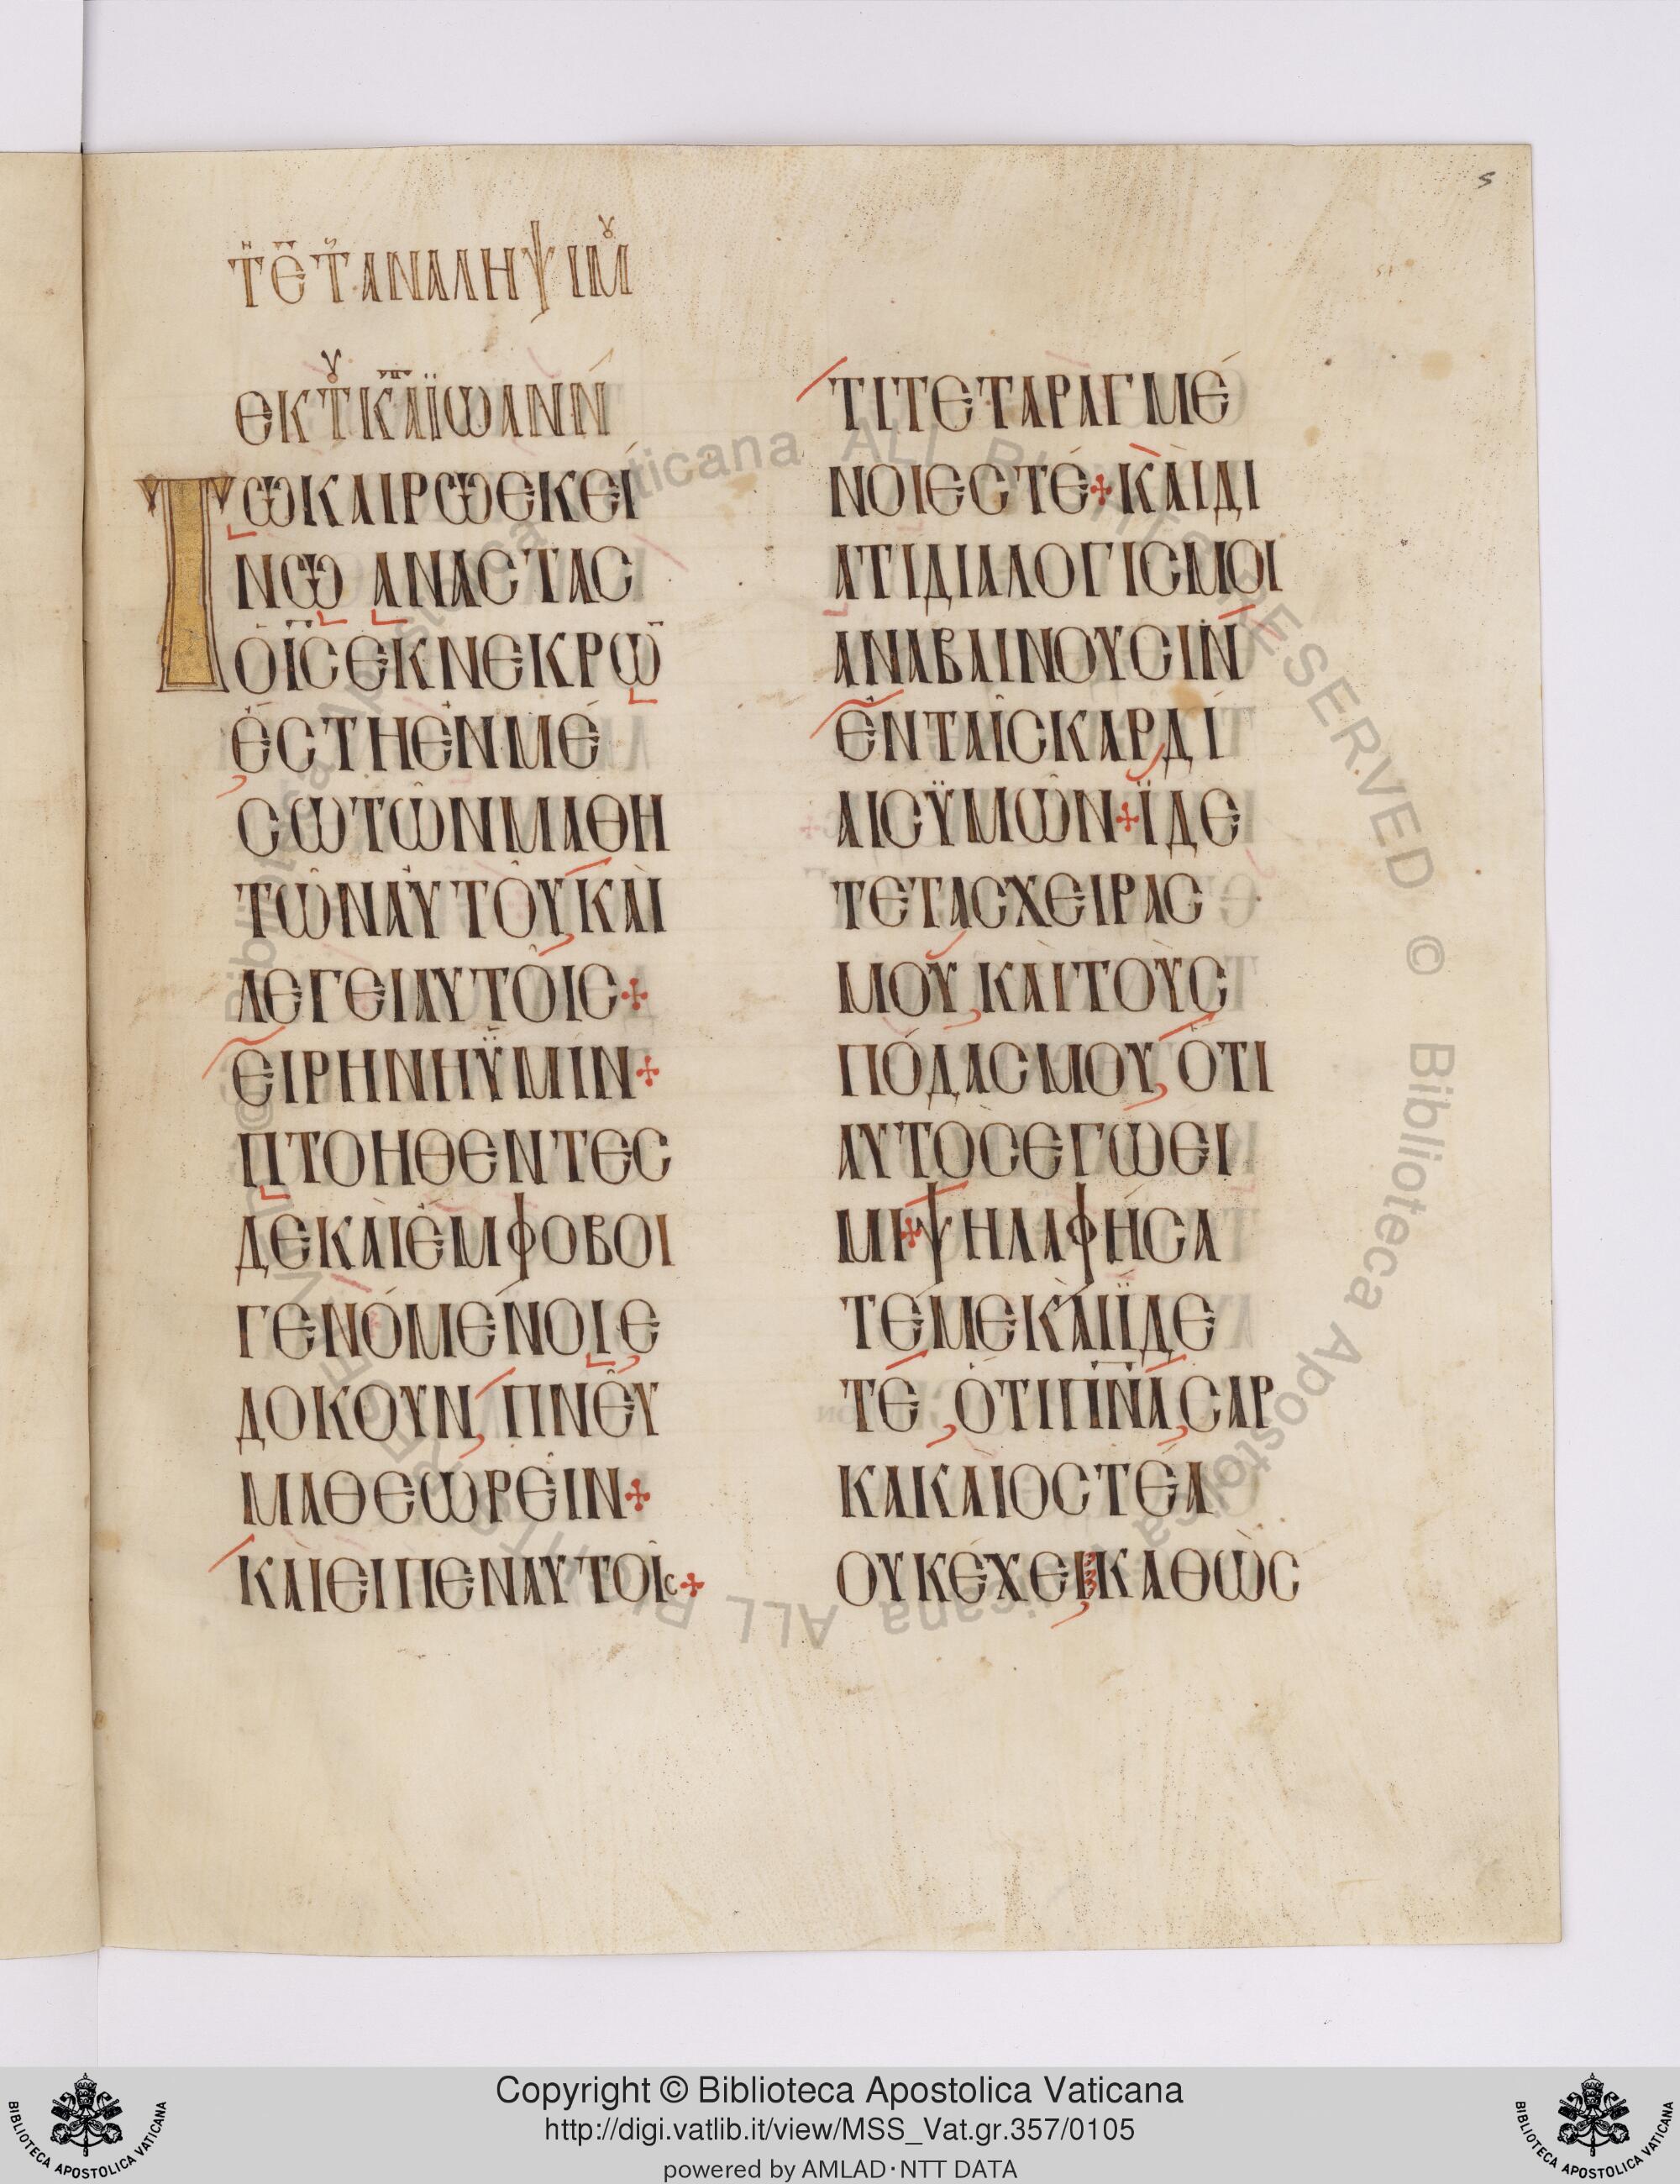 5
ΤΗ Ε ΤΗΣ ΑΝΑΛΗΨΙΜΟΥ
ΕΚ ΤΟΥ ΚΑΤΑ ΪΩΑΝΝ
ΤΩ ΚΑΙΡΩ ΕΚΕΙ
ΝΩ ΑΝΑСΤΑС
Ὁ ΙС ΕΚ ΝΕΚΡΩ̅
ἘСΤΗ ἘΝ ΜΈ
СΩ ΤΩ͂Ν ΜΑΘΗ
ΤΩ͂Ν ΑΥΤΟΥ͂ ΚΑῚ
ΛΕΓΕΙ ΑΥΤΟΙ͂С
ΕΙΡΗΝΗ ΫΜΙΝ
ΠΤΟΗΘΕΝΤΕС
ΔΕ ΚΑῚ ἘΜΦΟΒΟΙ
ΓΕΝΌΜΕΝΟΙ Ε
ΔΟΚΟΥΝ, ΠΝΕΥ͂
ΜΑ ΘΕΩΡΕΙΝ
ΚΑῚ ΕΙΠΕΝ ΑΥΤΟΙС
ΤΙ ΤΕΤΑΡΑΓΜΈ
ΝΟΙ ΕСΤΈ ΚΑῚ ΔΙ
ΑΤΙ ΔΙΑΛΟΓΙСΜΟΙ
ΑΝΑΒΑΙΝΟΥСΙΝ
ἘΝ ΤΑΙ͂С ΚΑΡΔΊ
ΑΙС ΫΜΩ͂Ν ΪΔΕ
ΤΕ ΤΑС ΧΕΙΡΑС
ΜΟΥ, ΚΑῚ ΤΟῪС
ΠΌΔΑС ΜΟΥ, ὉΤΙ
ΑΥΤΟС ΕΓΩ ΕΙ
ΜΙ ΨΗΛΑΦΗСΑ
ΤΈ ΜΕ ΚΑῚ ΪΔΕ
ΤΕ, ὉΤΙ ΠΝΑ̅, СΑΡ
ΚΑ ΚΑΙ ΟСΤΈΑ
ΟΥΚ ΈΧΕΙ, ΚΑΘῺС
Copyright © Biblioteca Apostolica Vaticana
http://digi.vatlib.it/view/MSS_Vat.gr.357/0105
powered by AMLAD·NTT DATA
BIBLIOTECA APOSTOLICA VATICANA
BIBLIOTECA APOSTOLICA VATICANA